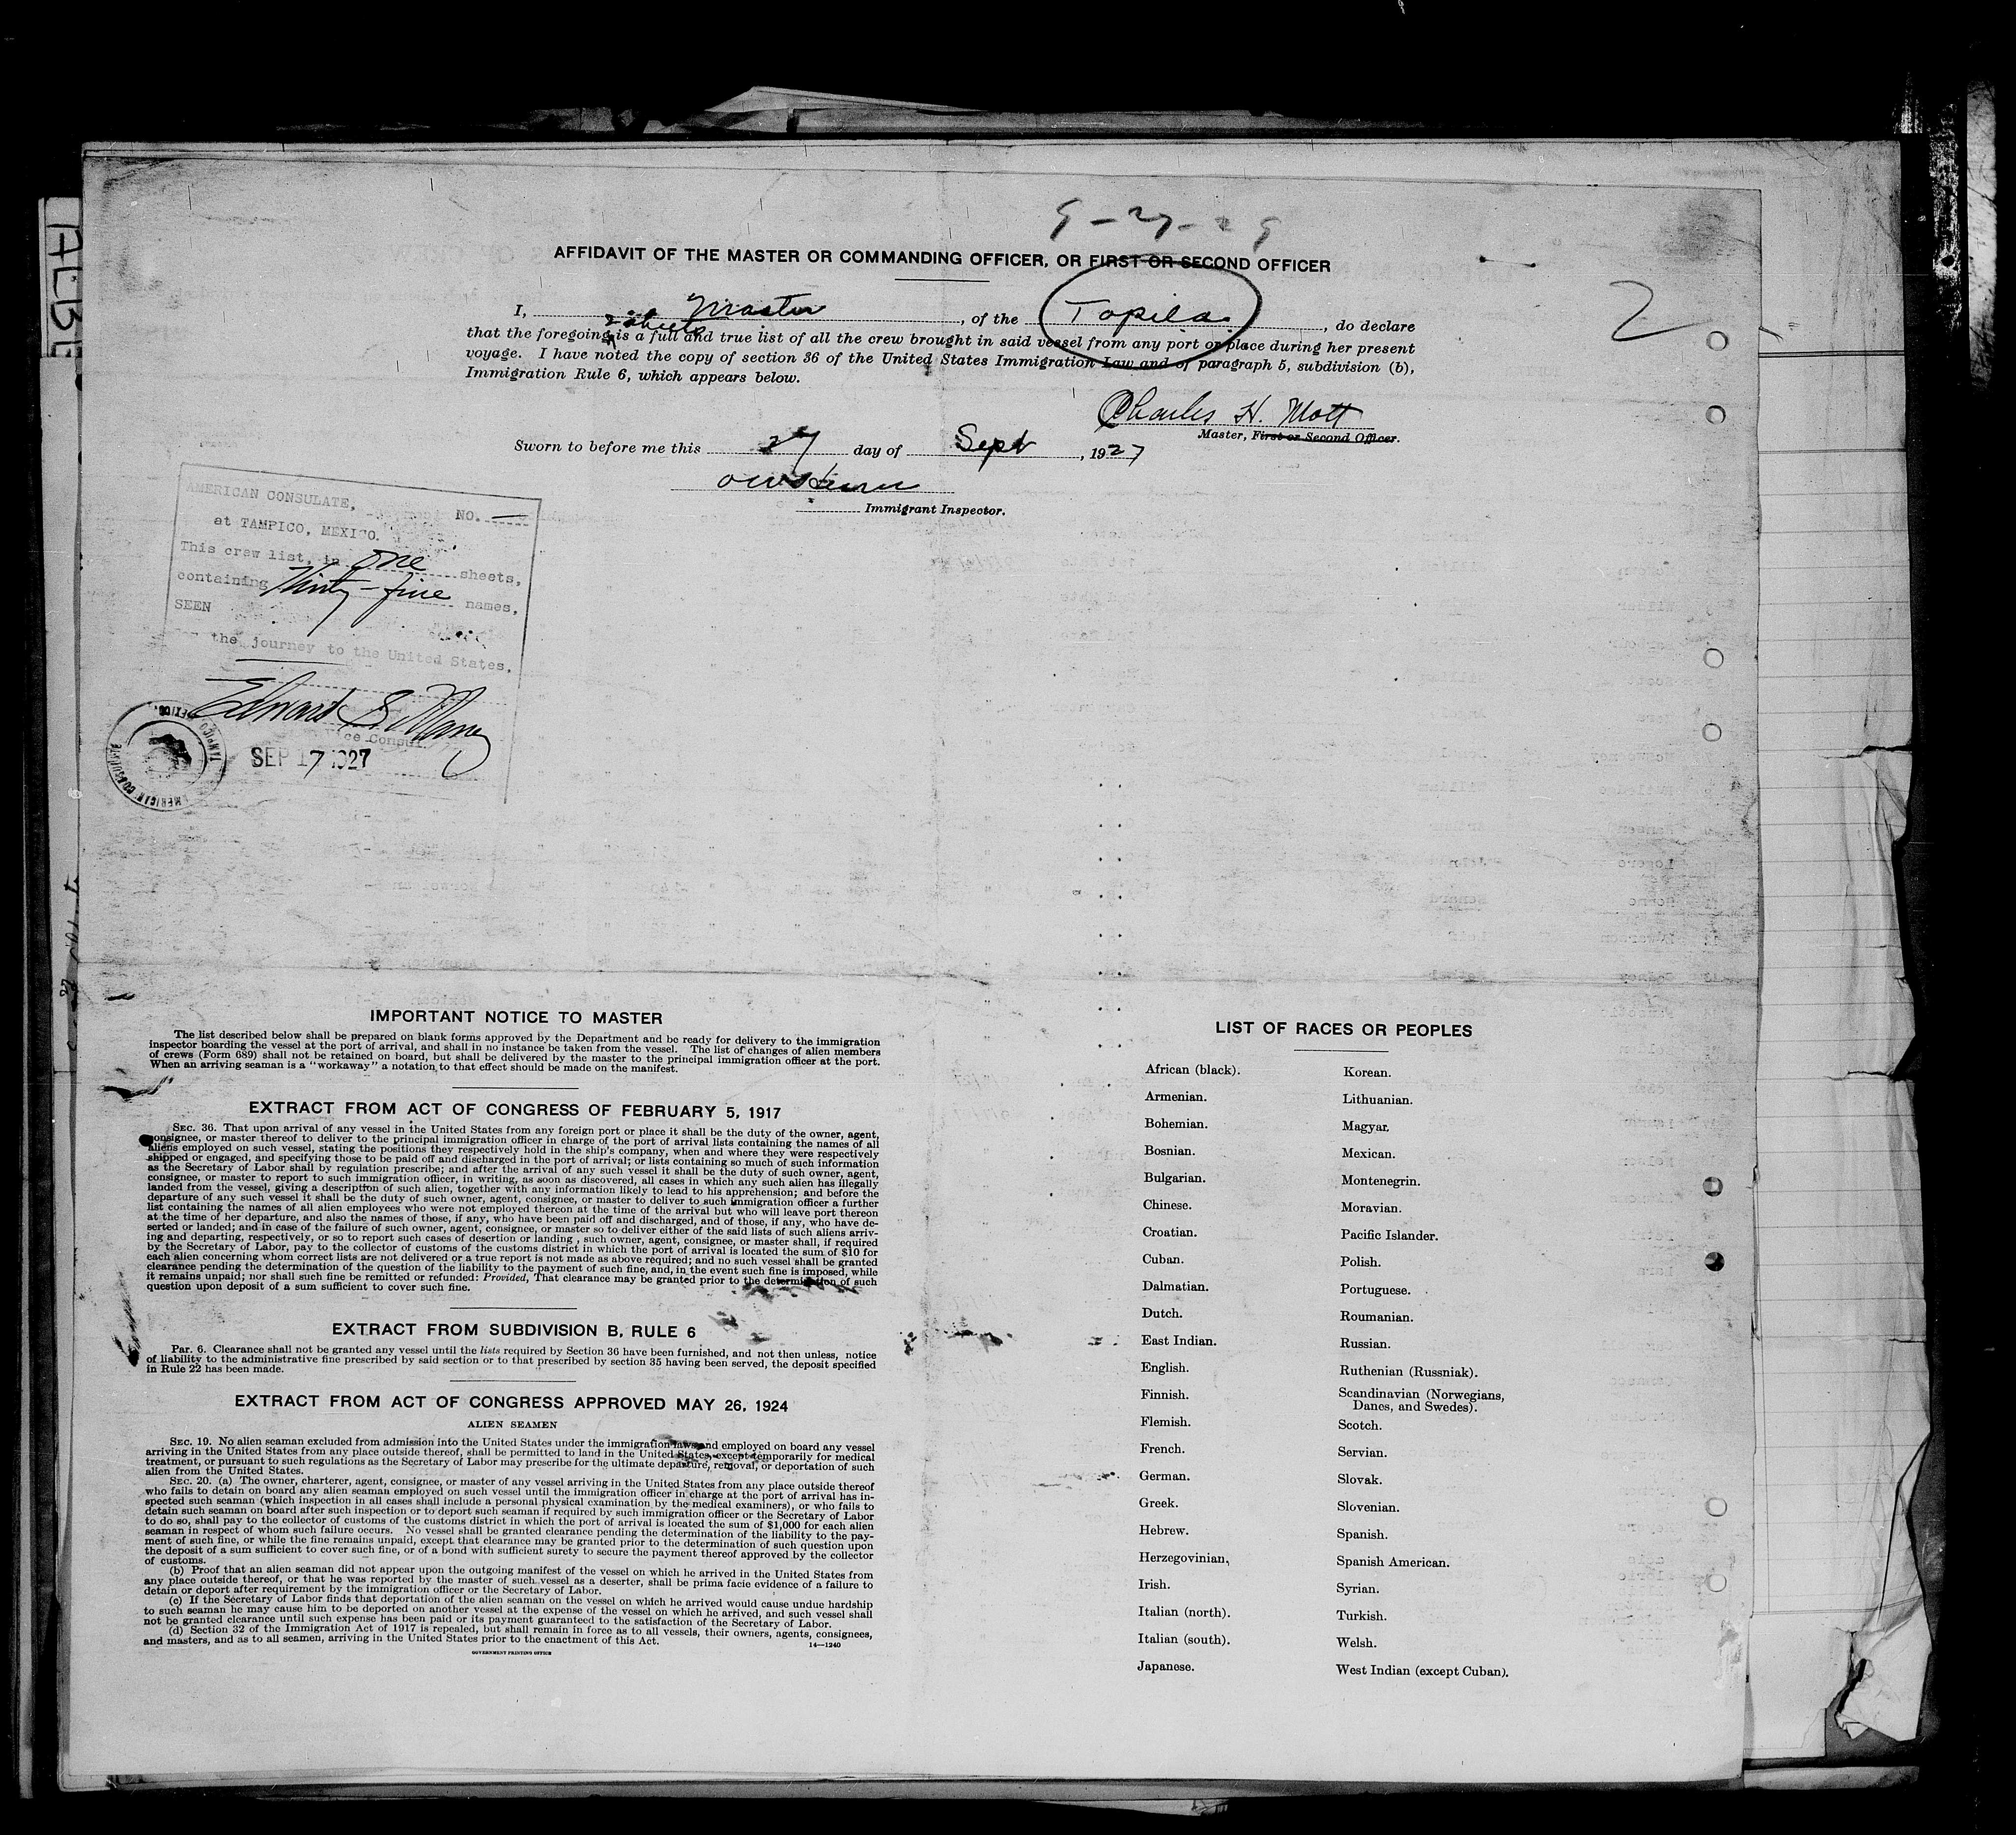 9-27-29
AFFIDAVIT OF THE MASTER OR COMMANDING OFFICER, OR FIRST OR SECOND OFFICER
2
I, Master, of the Topila, do declare
2 sheets
that the foregoing is a full and true list of all the crew brought in said vessel from any port or place during her present
voyage. I have noted the copy of section 36 of the United States Immigration Law and of paragraph 5, subdivision (b),
Immigration Rule 6, which appears below.
Charles H. Mott
Master, First or Second Officer.
Sworn to before me this 27 day of Sept, 1927
Immigrant Inspector.
AMERICAN CONSULATE, NO. —
at TAMPICO, MEXICO.
This crew list, in one sheets,
containing Thirty-five names,
SEEN
the journey to the United States.
Edward S. Maney
Vice Consul.
SEP 17 1927
AMERICAN CONSULATE TAMPICO, MEXICO.
IMPORTANT NOTICE TO MASTER
The list described below shall be prepared on blank forms approved by the Department and be ready for delivery to the immigration
inspector boarding the vessel at the port of arrival, and shall in no instance be taken from the vessel. The list of changes of alien members
of crews (Form 689) shall not be retained on board, but shall be delivered by the master to the principal immigration officer at the port.
When an arriving seaman is a "workaway" a notation to that effect should be made on the manifest.
EXTRACT FROM ACT OF CONGRESS OF FEBRUARY 5, 1917
SEC. 36. That upon arrival of any vessel in the United States from any foreign port or place it shall be the duty of the owner, agent,
consignee, or master thereof to deliver to the principal immigration officer in charge of the port of arrival lists containing the names of all
aliens employed on such vessel, stating the positions they respectively hold in the ship's company, when and where they were respectively
shipped or engaged, and specifying those to be paid off and discharged in the port of arrival; or lists containing so much of such information
as the Secretary of Labor shall by regulation prescribe; and after the arrival of any such vessel it shall be the duty of such owner, agent,
consignee, or master to report to such immigration officer, in writing, as soon as discovered, all cases in which any such alien has illegally
landed from the vessel, giving a description of such alien, together with any information likely to lead to his apprehension; and before the
departure of any such vessel it shall be the duty of such owner, agent, consignee, or master to deliver to such immigration officer a further
list containing the names of all alien employees who were not employed thereon at the time of the arrival but who will leave port thereon
at the time of her departure, and also the names of those, if any, who have been paid off and discharged, and of those, if any, who have de-
serted or landed; and in case of the failure of such owner, agent, consignee, or master so to deliver either of the said lists of such aliens arriv-
ing and departing, respectively, or so to report such cases of desertion or landing, such owner, agent, consignee, or master shall, if required
by the Secretary of Labor, pay to the collector of customs of the customs district in which the port of arrival is located the sum of $10 for
each alien concerning whom correct lists are not delivered or a true report is not made as above required; and no such vessel shall be granted
clearance pending the determination of the question of the liability to the payment of such fine, and, in the event such fine is imposed, while
it remains unpaid; nor shall such fine be remitted or refunded: Provided, That clearance may be granted prior to the determination of such
question upon deposit of a sum sufficient to cover such fine.
EXTRACT FROM SUBDIVISION B, RULE 6
Par. 6. Clearance shall not be granted any vessel until the lists required by Section 36 have been furnished, and not then unless, notice
of liability to the administrative fine prescribed by said section or to that prescribed by section 35 having been served, the deposit specified
in Rule 22 has been made.
EXTRACT FROM ACT OF CONGRESS APPROVED MAY 26, 1924
ALIEN SEAMEN
SEC. 19. No alien seaman excluded from admission into the United States under the immigration laws and employed on board any vessel
arriving in the United States from any place outside thereof, shall be permitted to land in the United States, except temporarily for medical
treatment, or pursuant to such regulations as the Secretary of Labor may prescribe for the ultimate departure, removal, or deportation of such
alien from the United States.
SEC. 20. (a) The owner, charterer, agent, consignee, or master of any vessel arriving in the United States from any place outside thereof
who fails to detain on board any alien seaman employed on such vessel until the immigration officer in charge at the port of arrival has in-
spected such seaman (which inspection in all cases shall include a personal physical examination by the medical examiners), or who fails to
detain such seaman on board after such inspection or to deport such seaman if required by such immigration officer or the Secretary of Labor
to do so, shall pay to the collector of customs of the customs district in which the port of arrival is located the sum of $1,000 for each alien
seaman in respect of whom such failure occurs. No vessel shall be granted clearance pending the determination of the liability to the pay-
ment of such fine, or while the fine remains unpaid, except that clearance may be granted prior to the determination of such question upon
the deposit of a sum sufficient to cover such fine, or of a bond with sufficient surety to secure the payment thereof approved by the collector
of customs.
(b) Proof that an alien seaman did not appear upon the outgoing manifest of the vessel on which he arrived in the United States from
any place outside thereof, or that he was reported by the master of such vessel as a deserter, shall be prima facie evidence of a failure to
detain or deport after requirement by the immigration officer or the Secretary of Labor.
(c) If the Secretary of Labor finds that deportation of the alien seaman on the vessel on which he arrived would cause undue hardship
to such seaman he may cause him to be deported on another vessel at the expense of the vessel on which he arrived, and such vessel shall
not be granted clearance until such expense has been paid or its payment guaranteed to the satisfaction of the Secretary of Labor.
(d) Section 32 of the Immigration Act of 1917 is repealed, but shall remain in force as to all vessels, their owners, agents, consignees,
and masters, and as to all seamen, arriving in the United States prior to the enactment of this Act.
14—1240
GOVERNMENT PRINTING OFFICE
LIST OF RACES OR PEOPLES
African (black).
Armenian.
Bohemian.
Bosnian.
Bulgarian.
Chinese.
Croatian.
Cuban.
Dalmatian.
Dutch.
East Indian.
English.
Finnish.
Flemish.
French.
German.
Greek.
Hebrew.
Herzegovinian,
Irish.
Italian (north).
Italian (south).
Japanese.
Korean.
Lithuanian.
Magyar.
Mexican.
Montenegrin.
Moravian.
Pacific Islander.
Polish.
Portuguese.
Roumanian.
Russian.
Ruthenian (Russniak).
Scandinavian (Norwegians,
Danes, and Swedes).
Scotch.
Servian.
Slovak.
Slovenian.
Spanish.
Spanish American.
Syrian.
Turkish.
Welsh.
West Indian (except Cuban).